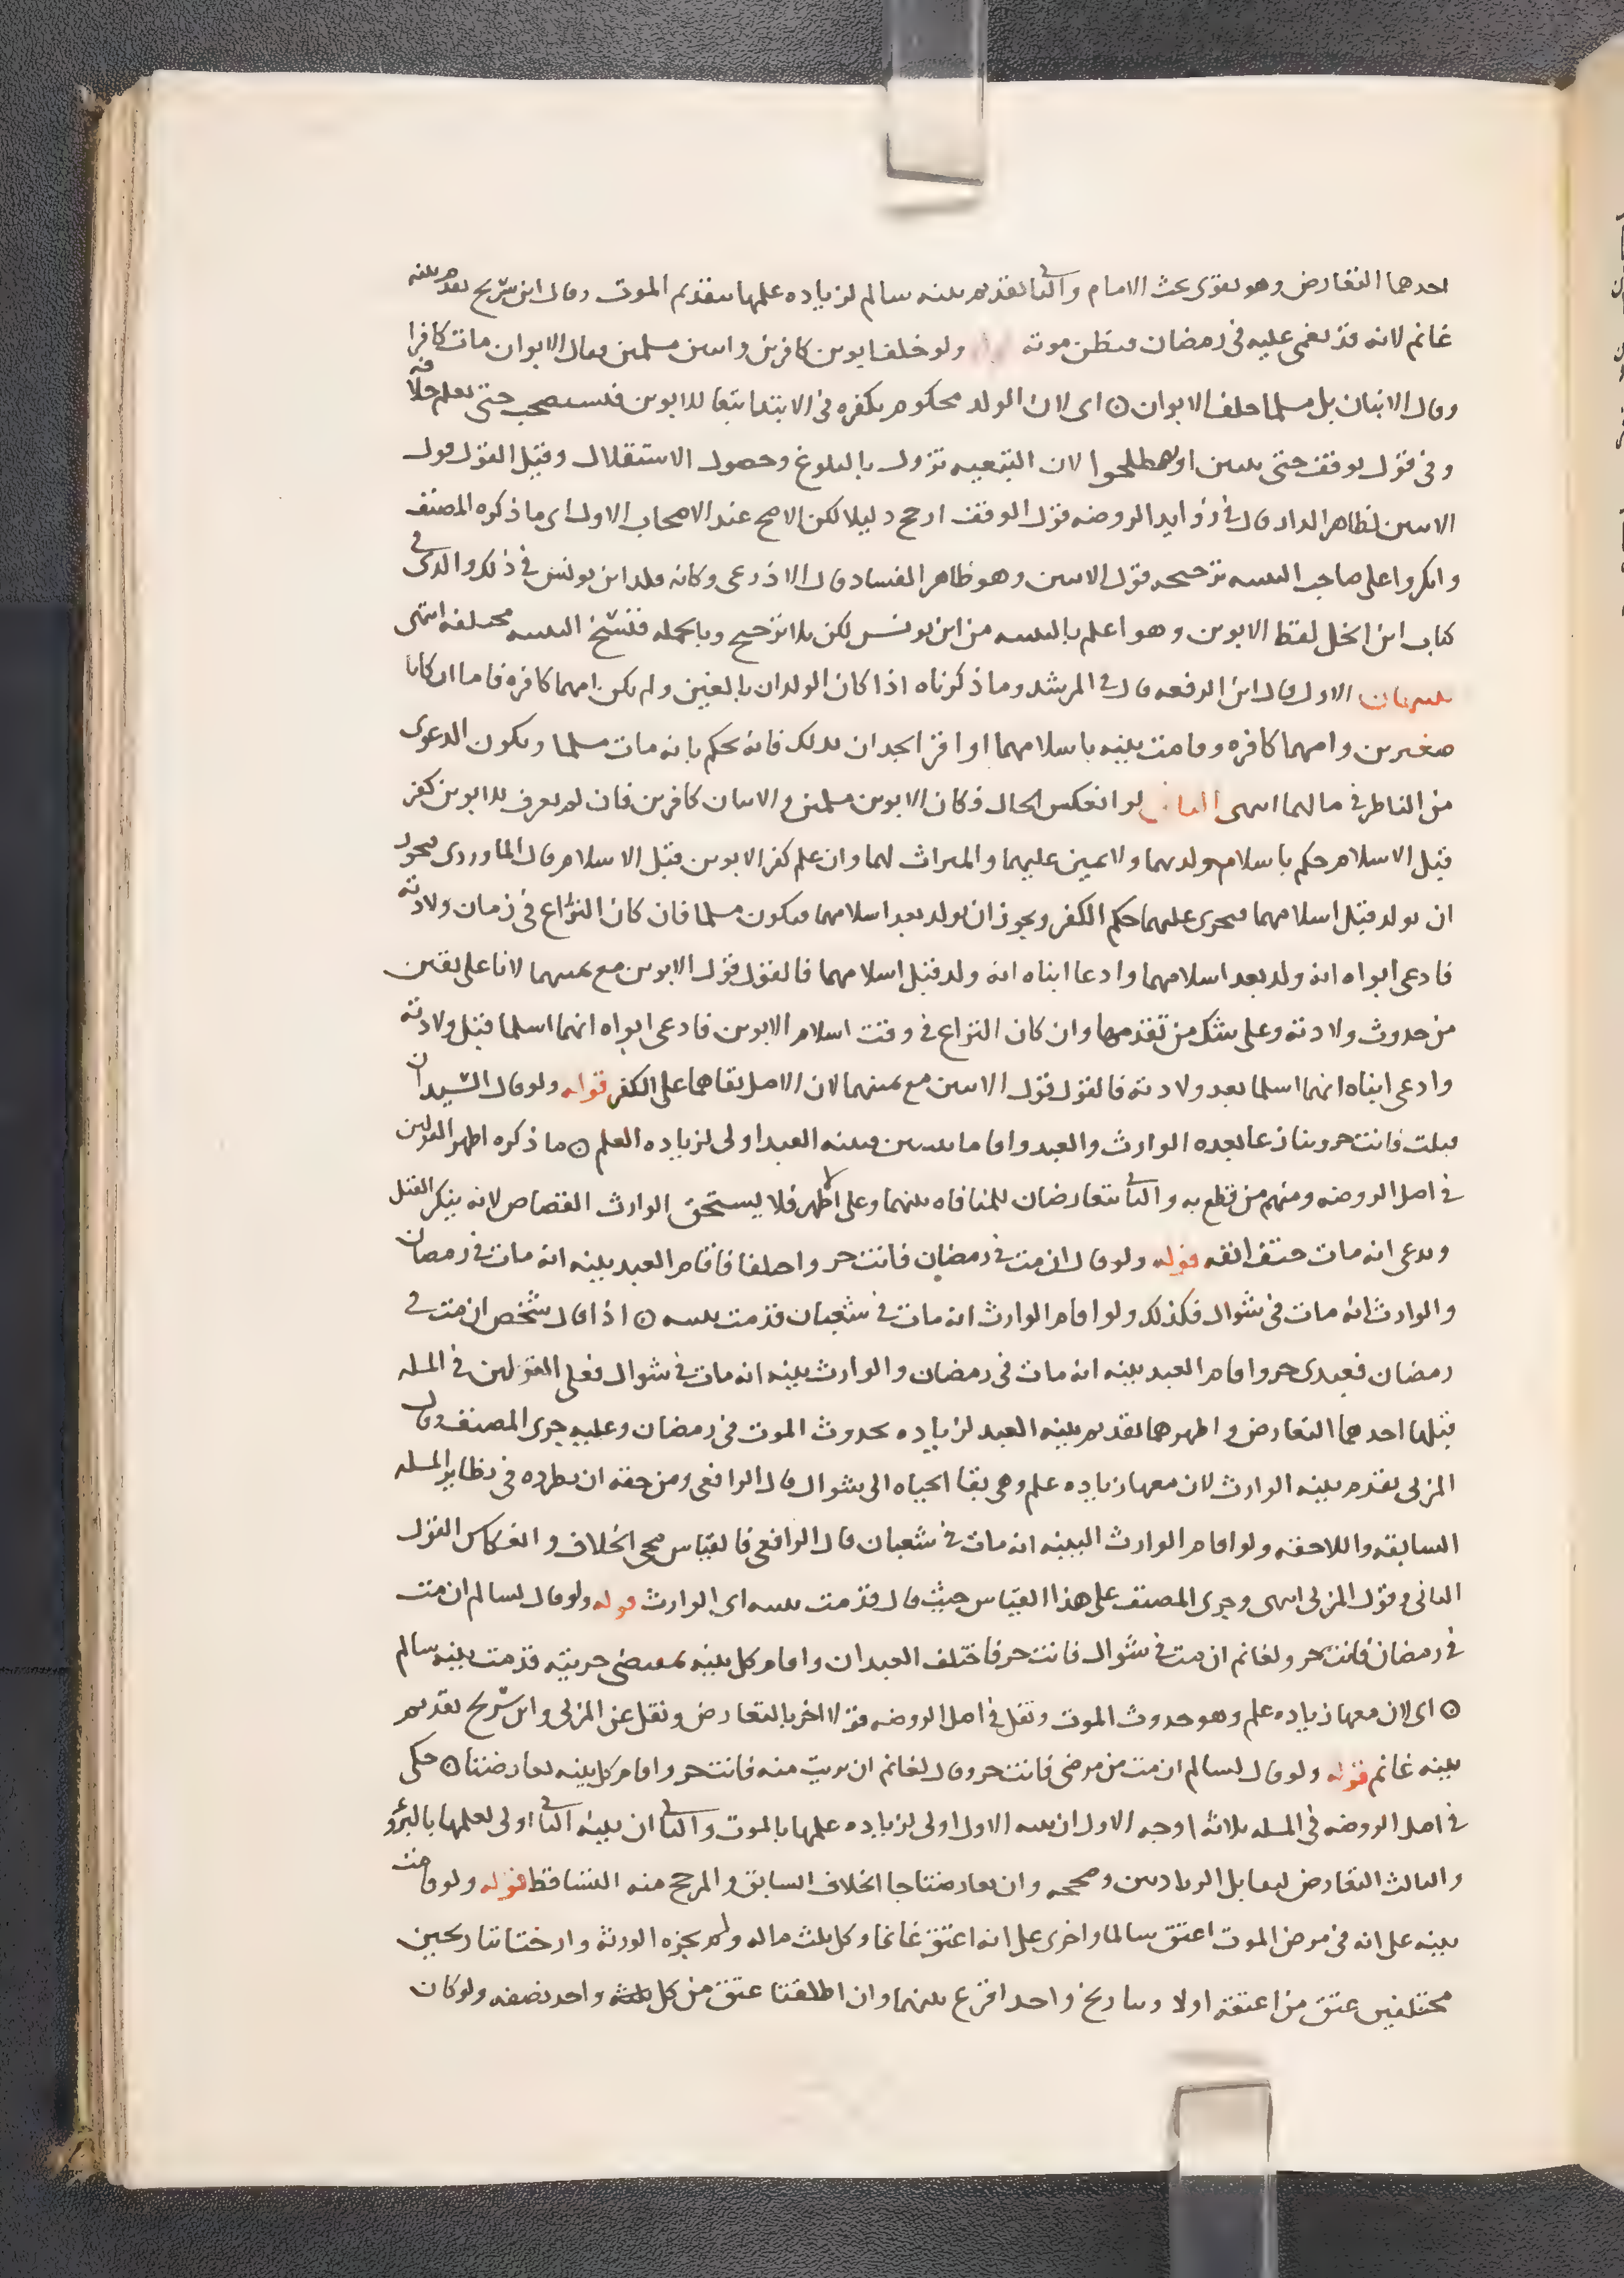 احدهما التعارض وهو يقوى بحث الامام والثاني تقديم بينه سالم لزياده علمها بتقديم الموت وقال ابن سريج تقدم بينه
غانم لانه قد يغمى عليه في رمضان فيظن موته ولو خلف ابوين كافرين وابنين مسلمين فقال الابوان مات كافرا
وقال الابنان بل مسلما حلف الابوان ۞ اى لان الولد محكوم بكفره في الابتدا تبعا للابوين فيستصحب حتى يعلم خلافه
وفي قول يوقف حتى يتبين او يصطلحوا لان التبعيه تزول بالبلوغ وحصول الاستقلال وقيل القول قول
الابنين لظاهر الدار قال في زوايد الروضه قول الوقف ارجح دليلا لكن الاصح عند الاصحاب الاول اى ما ذكره المصنف
وانكروا على صاحب التنبيه ترجيحه قول الابنين وهو ظاهر الفساد قال الاذرعى وكانه قلد ابن يونس في ذلك والذى في
كتاب ابن الخل لفظ الابوين وهو اعلم بالتنبيه من ابن يونس لكن بلا ترجيح وبالجمله فنسخ التنبيه مختلفه انتهى
تنبيهان الاول قال ابن الرفعه قال في المرشد وما ذكرناه اذا كان الولدان بالغين ولم تكن امهما كافره فاما ان كانا
صغيرين وامهما كافره وقامت بينه باسلامهما او اقر الجدان بذلك فانه يحكم بانه مات مسلما وتكون الدعوى
من الناظر في مالهما انتهى الثاني لو انعكس الحال فكان الابوين مسلمين والابنان كافرين فان لم يعرف للابوين كفر
قبل الاسلام حكم باسلام ولدهما ولا يمين عليهما والميراث لهما وان علم كفر الابوين قبل الاسلام قال الماوردى فيجوز
ان يولد قبل اسلامهما فيجرى عليهما حكم الكفر ويجوز ان يولد بعد اسلامهما فيكون مسلما فان كان النزاع في زمان ولادته
فادعى ابواه انه ولد بعد اسلامهما وادعا ابناه انه ولد قبل اسلامهما فالقول قول الابوين مع يمينهما لانا على يقين
من حدوث ولادته وعلى شك من تقدمها وان كان النزاع في وقت اسلام الابوين فادعى ابواه انهما اسلما قبل ولادته
وادعى ابناه انهما اسلما بعد ولادته فالقول قول الابنين مع يمينهما لان الاصل بقاهما على الكفر قوله ولو قال السيد ان
قتلت فانت حر وتنازعا بعده الوارث والعبد واقاما بينتين فبينه العبد اولى لزياده العلم ۞ ما ذكره اظهر القولين
في اصل الروضه ومنهم من قطع به والثاني يتعارضان للمنافاه بينهما وعلى الاظهر فلا يستحق الوارث القصاص لانه ينكر القتل
ويدعى انه مات حتف انفه قوله ولو قال ان مت في رمضان فانت حر واختلفا فاقام العبد بينه انه مات في رمضان
والوارث انه مات في شوال فكذلك ولو اقام الوارث انه مات في شعبان قدمت بينته ۞ اذا قال شخص ان مت في
رمضان فعبدى حر واقام العبد بينه انه مات في رمضان والوارث بينه انه مات في شوال فعلى القولين في المسله
قبلها احدهما التعارض واظهرهما تقديم بينه العبد لزياده بحدوث الموت في رمضان وعليه جرى المصنف وقال
المزنى تقدم بينه الوارث لان معها زياده علم وهى بقا الحياه الى شوال قال الرافعى ومن حقه ان يطرده في نظاير المسله
السابقه واللاحقه ولو اقام الوارث البينه انه مات في شعبان قال الرافعى فالقياس مجى الخلاف وانعكاس القول
الثانى وقول المزنى انتهى وجرى المصنف على هذا القياس حيث قال قدمت بينته اى الوارث قوله ولو قال لسالم ان مت
في رمضان فانت حر ولغانم ان مت في شوال فانت حر فاختلف العبدان واقام كل بينه بمقتضى حريته قدمت بينه سالم
۞ اى لان معها زياده علم وهو حدوث الموت ونقل في اصل الروضه قولا اخر بالتعارض ونقل عن المزنى وابن سريج تقديم
بينه غانم قوله ولو قال لسالم ان مت من مرضى فانت حر وقال لغانم ان بريت منه فانت حر واقام كل بينه تعارضتا ۞ حكى
في اصل الروضه في المسله ثلاثه اوجه الاول ان بينه الاول اولى لزياده علمها بالموت والثاني ان بينه الثاني اولى لعلمها بالبرؤ
والثالث التعارض لتقابل الزيادتين وصححه وان تعارضتا جا الخلاف السابق والمرجح منه التساقط قوله ولو قامت
بينه على انه في مرض الموت اعتق سالما واخرى على انه اعتق غانما وكل ثلث ماله ولم يجزه الورثه وارختا بتاريخين
مختلفين عتق من اعتقه اولا وبتاريخ واحد اقرع بينهما وان اطلقتا عتق من كل واحد نصفه ولو كان